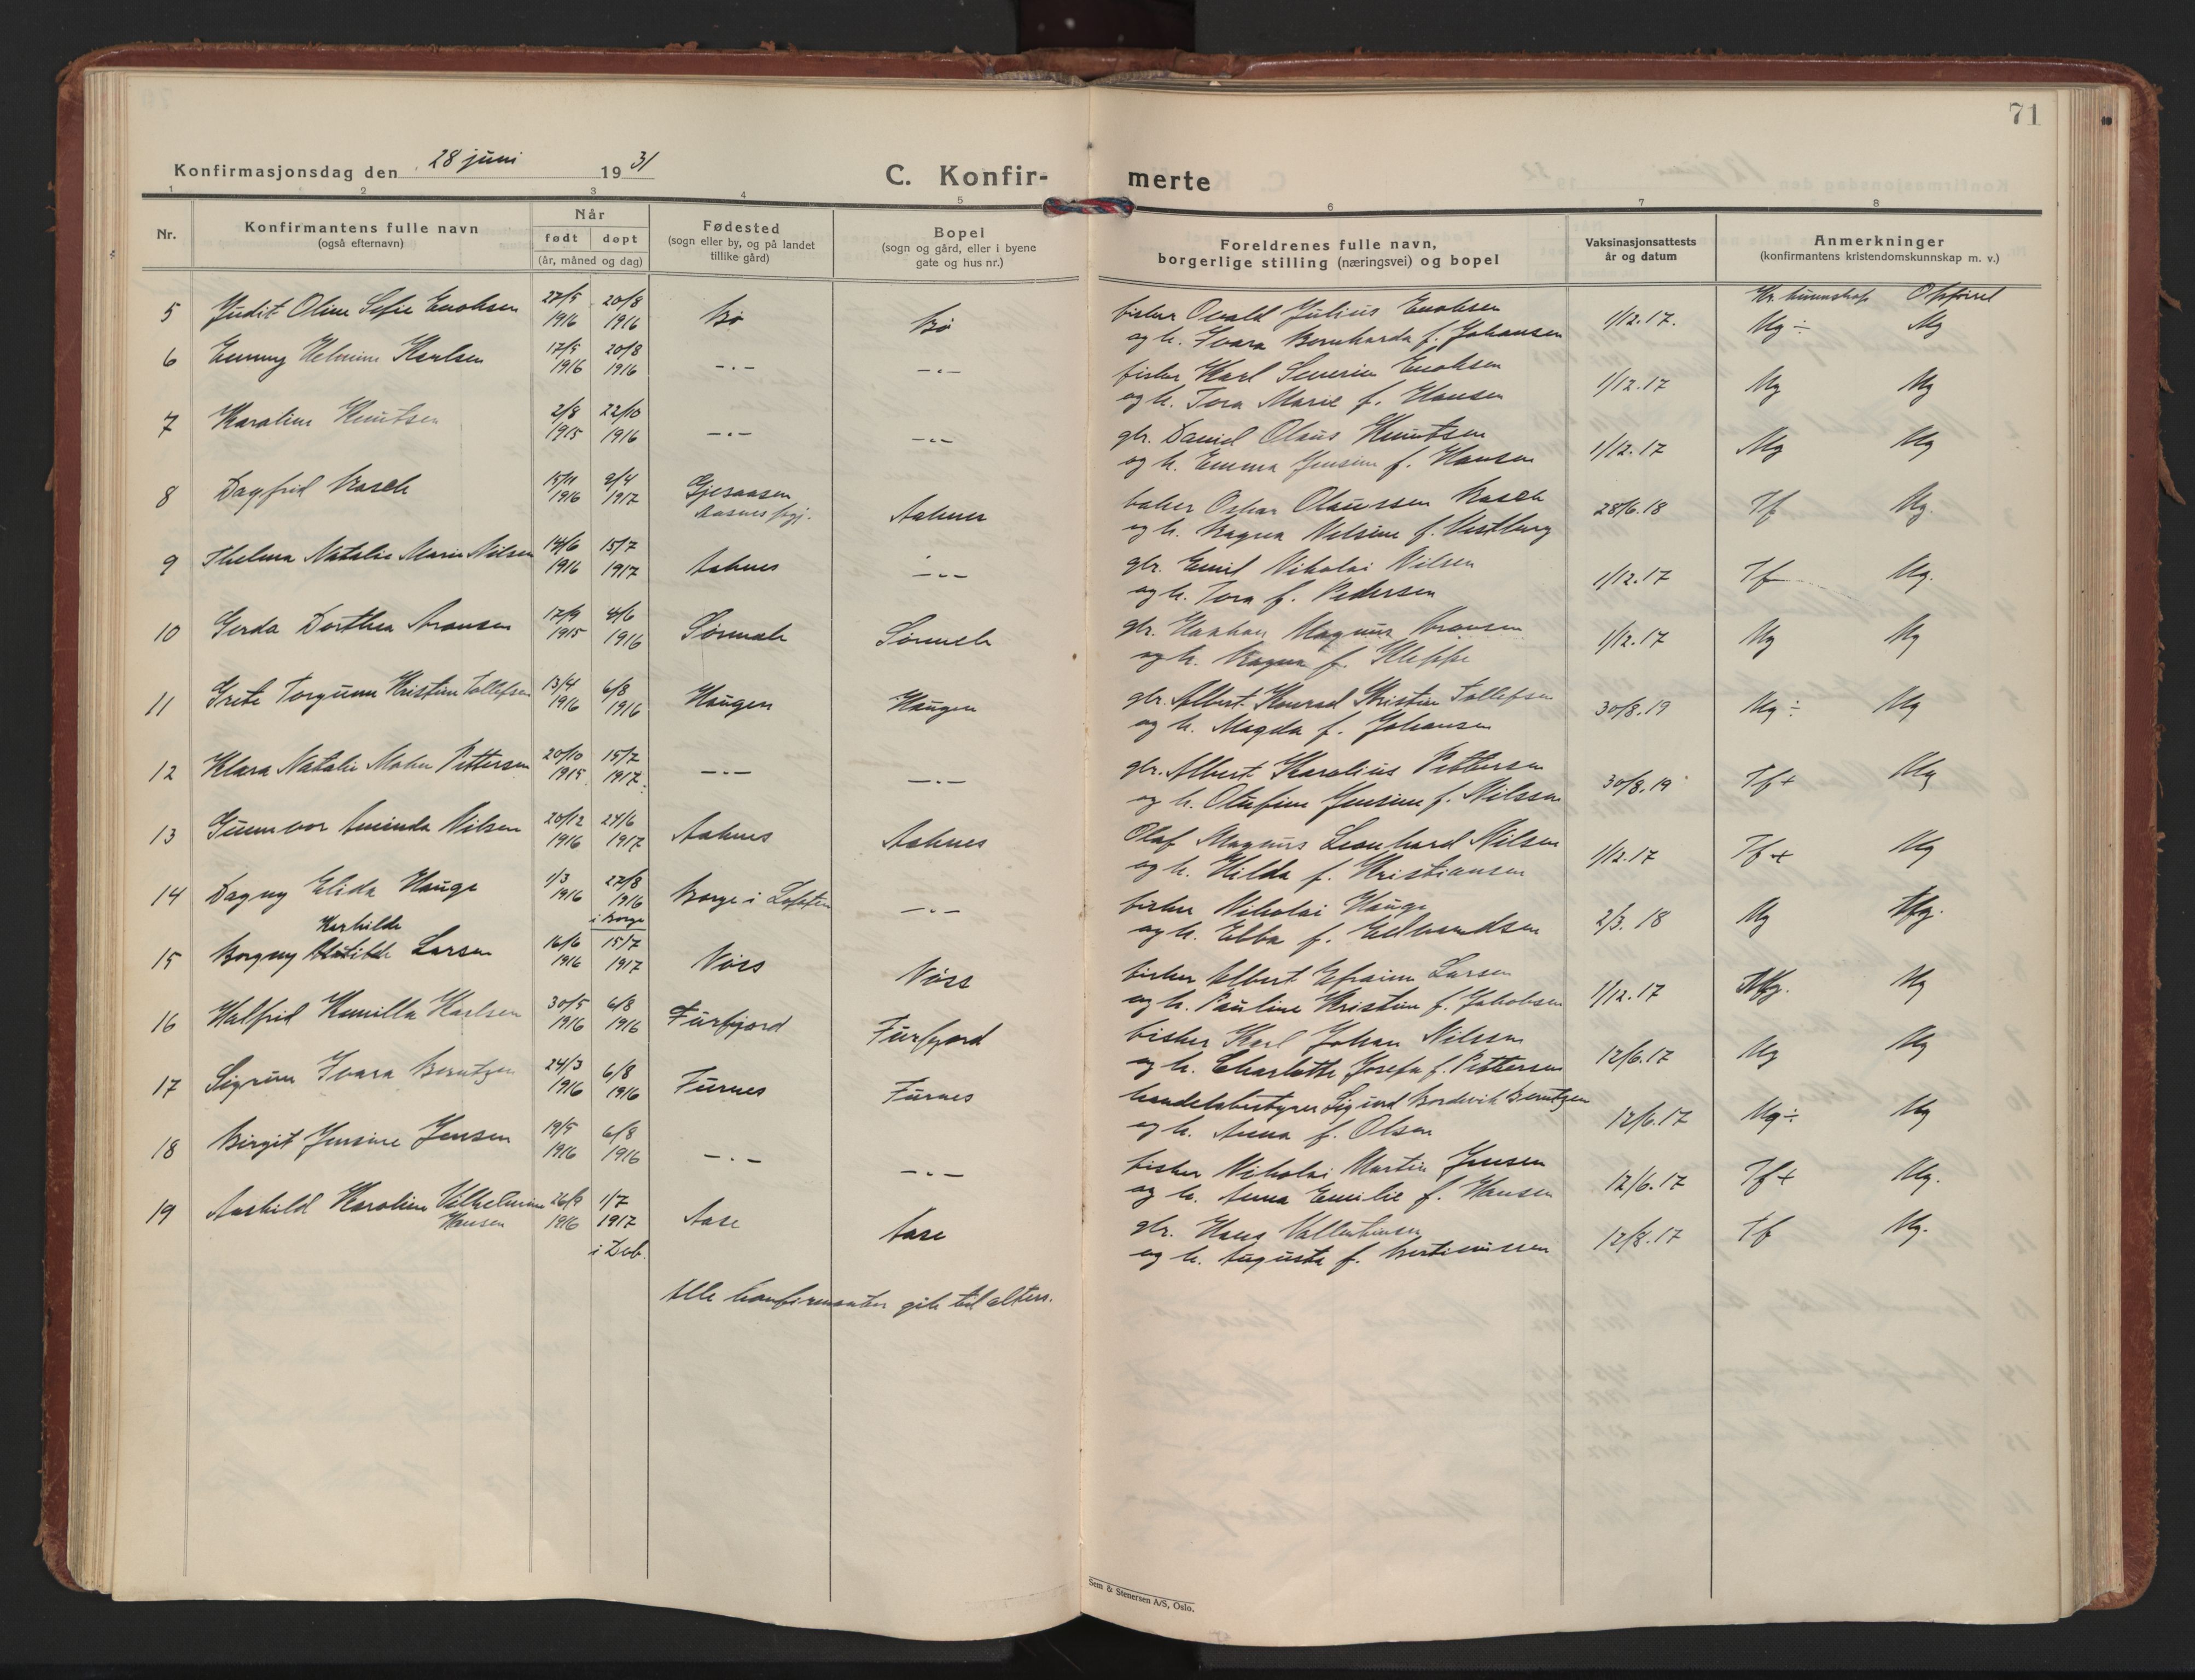 71
Konfirmasjonsdag den 28 juni 1931
C. Konfir- merte
1 2 3 4 5 6 7 8
Nr.
Konfirmantens fulle navn
(også efternavn)
Når
født døpt
(år, måned og dag)
Fødested
(sogn eller by, og på landet
tillike gård)
Bopel
(sogn og gård, eller i byene
gate og hus nr.)
Foreldrenes fulle navn,
borgerlige stilling (næringsvei) og bopel
Vaksinasjonsattests
år og datum
Anmerkninger
(konfirmantens kristendomskunnskap m. v.)
Kr. kunnskap Opførsel
5 Judit Oline Sofie Enoksen 27/5 1916 20/8 1916 Bø Bø fisker Osvald Julius Enoksen
og h. Ivara Bernharda f. Johansen 1/12.17. Mg ÷ Mg
6 Emmy Helmine Karlsen 17/5 1916 20/8 1916 —.— —.— fisker Karl Severin Enoksen
og h. Tora Marie f. Hansen 1/12.17 Mg Mg
7 Karoline Knutsen 2/8 1915 22/10 1916 —.— —.— gbr. Daniel Olaus Knutsen
og h. Emma Jensine f. Hansen 1/12.17 Mg Mg
8 Dagfrid Rasch 15/11 1916 9/4 1917 Gjesaasen
Aasnes pgj. Aaknes baker Oskar Olaussen Rasch
og h. Ragna Nelsine f. Vestberg 28/6.18 Tf Mg.
9 Thelma Natalie Marie Nilsen 14/6 1916 15/7 1917 Aaknes —.— gbr. Emil Nikolai Nilsen
og h. Tora f. Pedersen 1/12.17 Tf Mg.
10 Gerda Dorthea Aronsen 17/9 1915 4/6 1916 Sørmeh Sørmeh gbr. Haakon Magnus Aronsen
og h. Ragna f. Kleppe 1/12.17 Mg Mg
11 Grete Torgunn Kristine Tollefsen 13/4 1916 6/8 1916 Haugen Haugen gbr. Albert Konrad Kristian Tollefsen
og h. Magda f. Johansen 30/8.19 Mg ÷ Mg
12 Klara Natalie Pettersen 20/10 1915 15/7 1917. —.— —.— gbr. Albert Karolius Pettersen
og h. Olufine Jensine f. Nilssen 30/8.19 Tf+ Mg
13 Gunnvor Aminda Nilsen 20/12 1916 24/6 1917 Aaknes Aaknes Olaf Magnus Leonhard Nilsen
og h. Hilda f. Kristiansen 1/12.17 Tf+ Mg
14 Dagny Elida Hauge 1/3 1916 27/8 1916
i Borge Borge i Lofoten —.— fisker Nikolai Hauge
og h. Ebba f. Edvardsen 2/3.18 Mg Mg.
Kerhilde
15 Borgny Larsen 16/6 1916 15/7 1917 Nøss Nøss fisker Albert Efraim Larsen
og h. Pauline Kristine f. Jakobsen 1/12.17 Mg. Mg
16 Halfrid Kamilla Karlsen 30/5 1916 6/8 1916 Furfjord Furfjord fisker Karl Johan Nilssen
og h. Charlotte Josefa f. Pettersen 12/6.17 Mg Mg
17 Sigrun Ivara Berntzen 24/3 1916 6/8 1916 Furnes Furnes handelsbestyrer Sigurd Bordevik Berntzen
og h. Anna f. Olsen 12/6.17 Mg ÷ Mg
18 Birgit Jensine Jensen 19/5 1916 6/8 1916 —.— —.— fisker Nikolai Martin Jensen
og h. Anna Emilie f. Hansen 12/6.17 Tf+ Mg.
19 Aashild Karoline Vilhelmine
Hansen 26/9 1916 1/7 1917
i Dvb. Aase Aase gbr. Hans Vallentinsen
og h. Augusta f. Bertinussen 12/8.17 Tf Mg.
Alle konfirmanter gik til alters.
Sem & Stenersen A/S, Oslo.